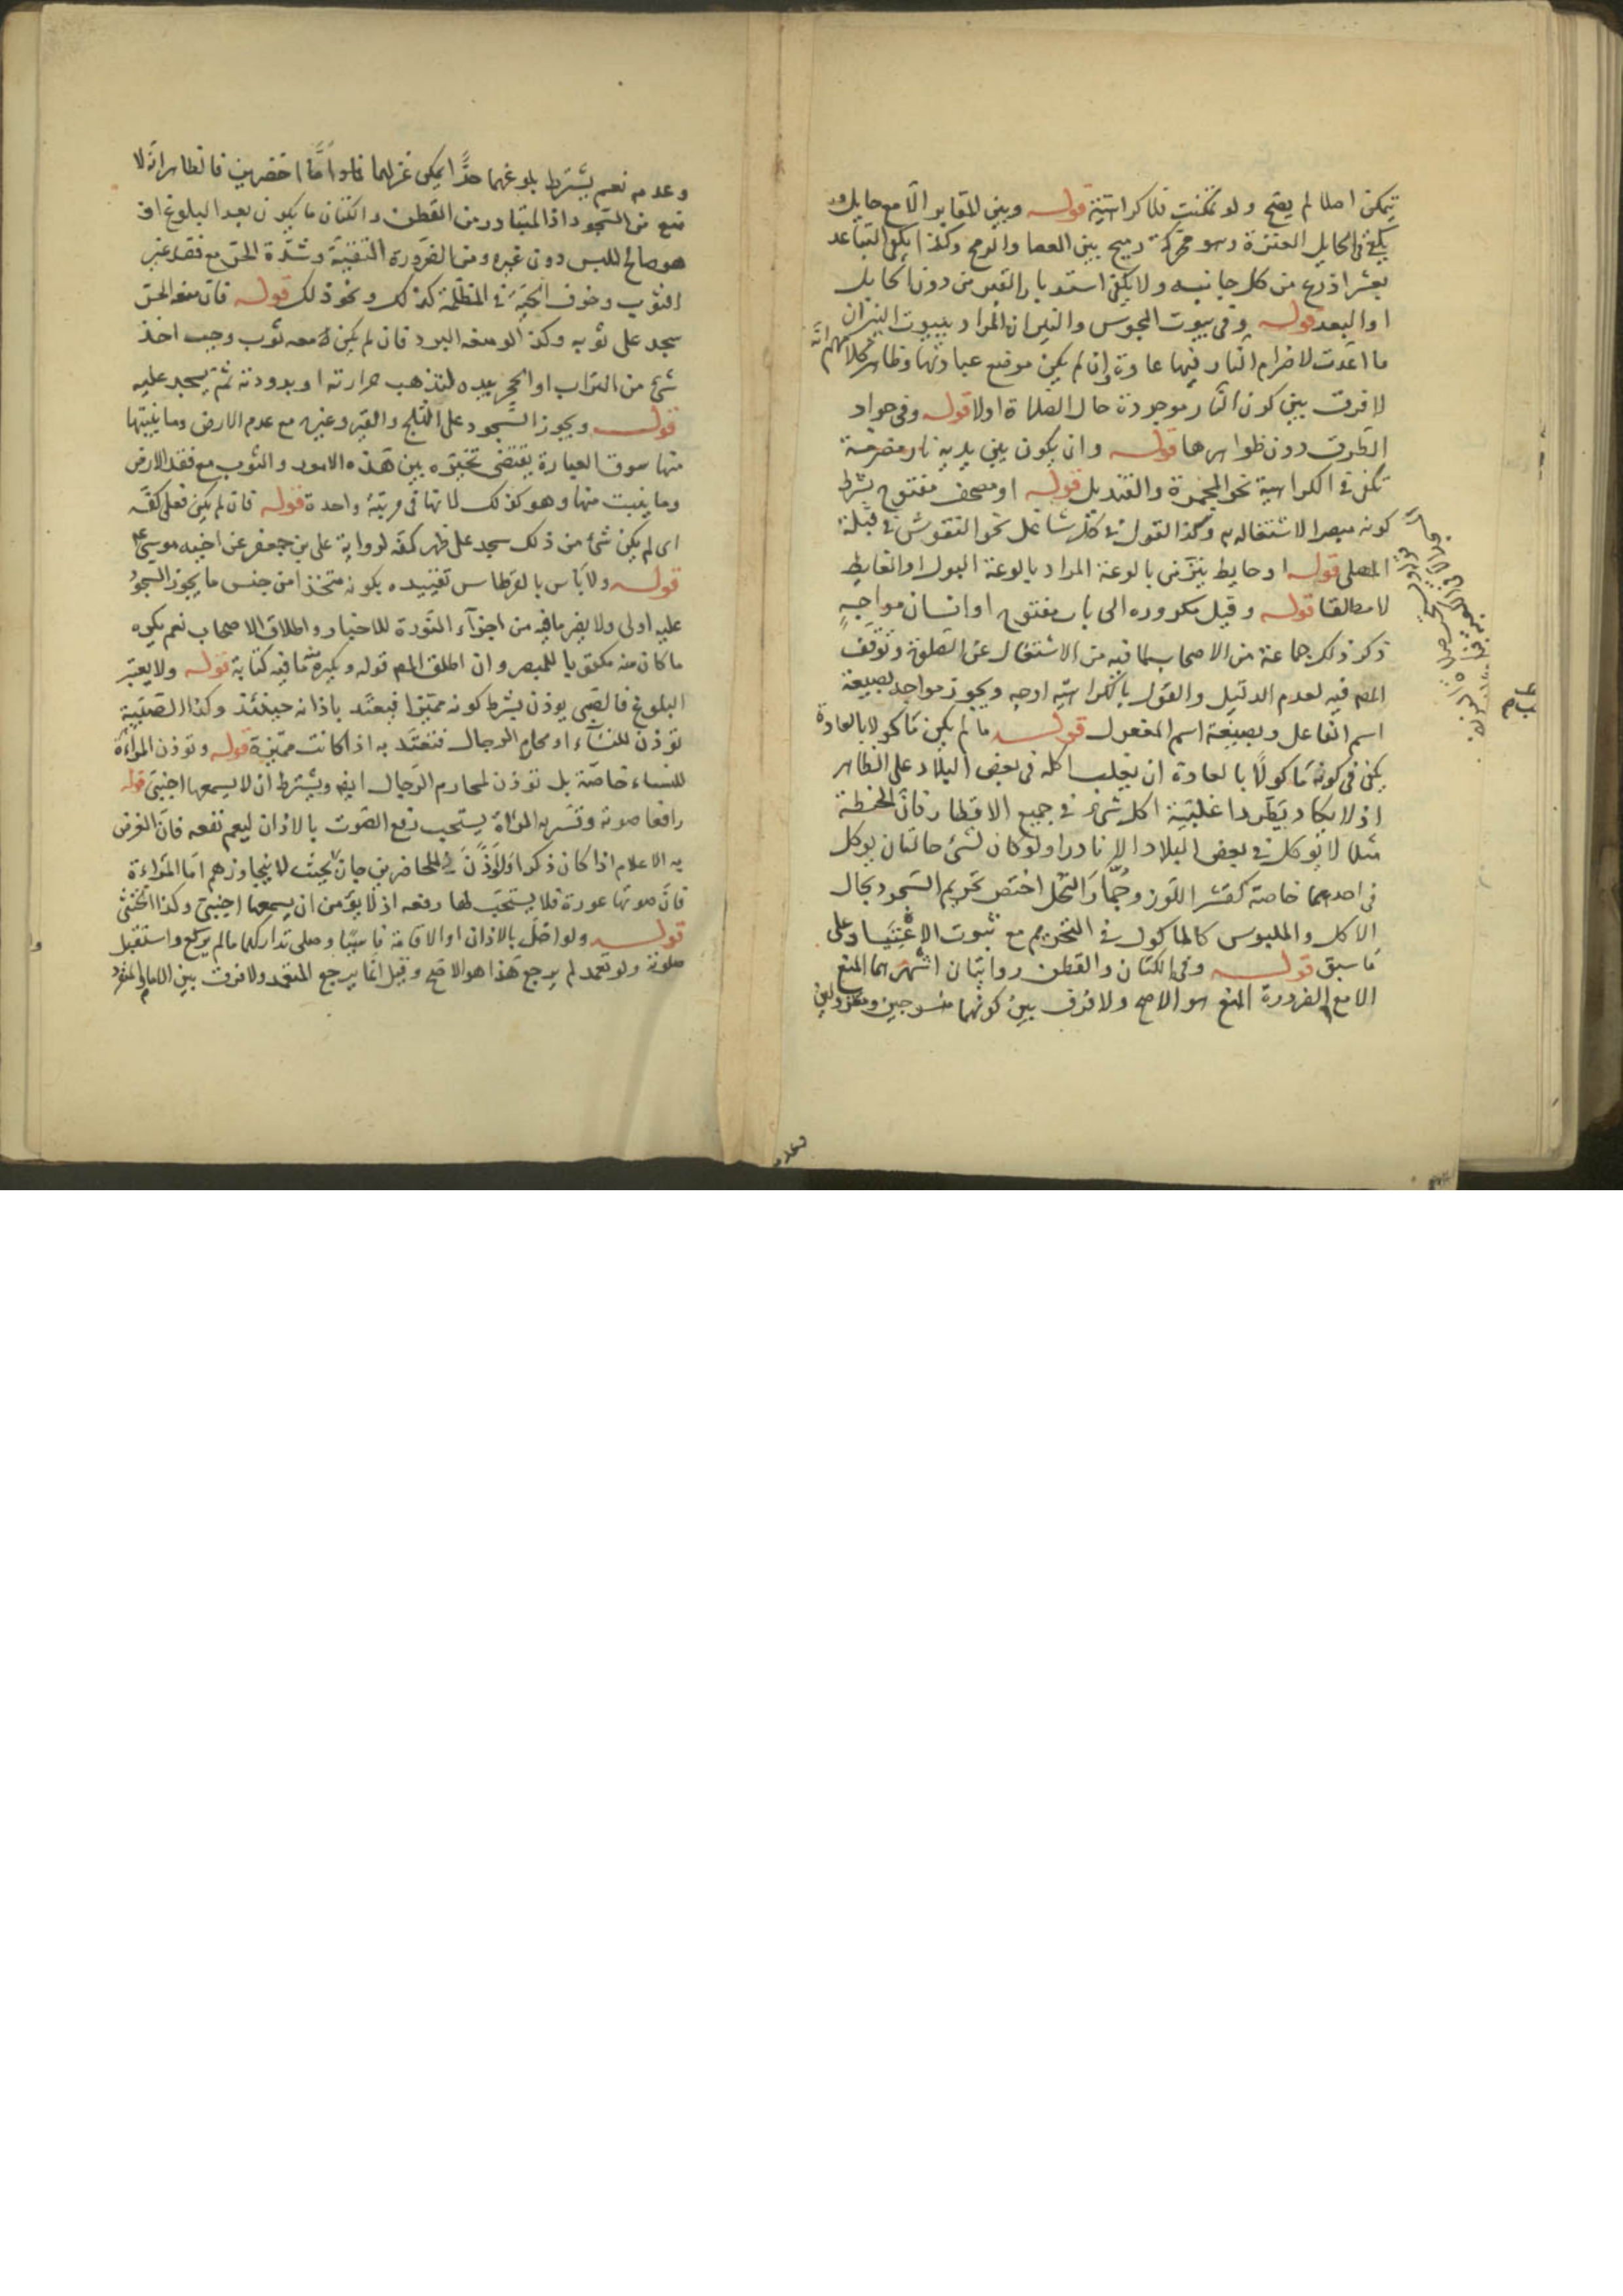 يتمكن اصلا لم يصح ولو تمكنت فلا كراهية قوله وبين المقابر الا مع حايل
يكفي في الحايل العنزة وهو محركة رميح بين العصا والرمح وكذا يكفي التباعد
بعشر اذرع من كل جانب ولا يكفي استدبار القبر من دون الحايل
او البعد قوله وفي بيوت المجوس والنيران المراد ببيوت النيران
ما اعدت لاضرام النار فيها عادة وان لم يكن موضع عبادتها وظاهر كلامهم انه
لا فرق بين كون النار موجودة حال الصلاة اولا قوله وفي جواد
الطرق دون ظواهرها قوله وان يكون بين يديه نار مضرمة
تكفي في الكراهية نحو المجمرة والقنديل قوله او مصحف مفتوح بشرط
كونه مبصرا لاشتغاله به وكذا القول في كل شاغل نحو النقوش في قبلة
المصلي قوله او حايط ينز من بالوعة المراد بالوعة البول او الغايط
لا مطلقا قوله وقيل يكره وروده الى باب مفتوح او انسان مواجه
ذكر ذلك جماعة من الاصحاب لما فيه من الاشتغال عن الصلوة وتوقف
المصم فيه لعدم الدليل والقول بالكراهية اوجه ويجوز مواجه بصيغة
اسم الفاعل وبصيغة اسم المفعول قوله ما لم يكن مأكولا بالعادة
يكفي في كونه مأكولا بالعادة ان يغلب اكله في بعض البلاد على الظاهر
اذ لا يكاد يطرد اغلبية اكل شيء في جميع الاقطار فان الحنطة
مثلا لا توكل في بعض البلاد الا نادرا ولو كان لشيء حالتان يوكل
في احدهما خاصة كقشر اللوز وجمار النخل اختص تحريم السجود بحال
الاكل والملبوس كالماكول في التحريم مع ثبوت الاعتياد على
ما سبق قوله وفي الكتان والقطن روايتان اشهرهما المنع
الا مع الضرورة المنع هو الاصح ولا فرق بين كونهما منسوجين ومغزولين
وعدمه نعم يشترط بلوغهما حدا يمكن غزلهما فلو اما اخضرين فالظاهر انه لا
منع من السجود اذ المتبادر من القطن والكتان ما يكون بعد البلوغ اذ
هو صالح للبس دون غيره ومن الضرورة التقية وشدة الحر مع فقد غير
الثوب وخوف الحية في المظلمة كذلك ونحو ذلك قوله فان منعه الحر
سجد على ثوبه وكذا لو منعه البرد فان لم يكن معه ثوب وجب اخذ
شيء من التراب او الحجر بيده لتذهب حرارته او برودته ثم يسجد عليه
قوله ويجوز السجود على الثلج والقير وغيره مع عدم الارض وما ينبتها
منها سوق العبارة يقتضي تخيره بين هذه الامور والثوب مع فقد الارض
وما ينبت منها وهو كذلك لانها في مرتبة واحدة قوله فان لم يكن فعلى كفه
اي لم يكن شيء من ذلك سجد على ظهر كفه لرواية علي بن جعفر عن اخيه موسى ع
قوله ولا بأس بالقرطاس تقييده بكونه متخذا من جنس ما يجوز السجود
عليه اولى ولا يضر ما فيه من اجزاء النورة للاخبار واطلاق الاصحاب نعم يكره
ما كان منه مكتوبا للمبصر وان اطلق المصم قوله ويكره منه ما فيه كتابة قوله ولا يعتبر
البلوغ فالصبي يوذن بشرط كونه مميزا فيعتد باذانه حينئذ وكذا الصبية
توذن للنساء او محارم الرجال فتعتد به اذا كانت مميزة قوله وتوذن المرأة
للنساء خاصة بل توذن لمحارم الرجال ايضا ويشترط ان لا يسمعها اجنبي قوله
رافعا صوته وتسر به المرأة يستحب رفع الصوت بالاذان ليعم نفعه فان الغرض
به الاعلام اذا كان ذكرا ولو اذن في الحاضرين جاز بحيث لا يتجاوزهم اما المرأة
فان صوتها عورة فلا يستحب لها رفعه اذ لا يؤمن ان يسمعها اجنبي وكذا الخنثى
قوله ولو اخل بالاذان او الاقامة ناسيا وصلى تداركهما ما لم يركع واستقبل
صلوته ولو تعمد لم يرجع هذا هو الاصح وقيل انما يرجع المتعمد ولا فرق بين الامام والمنفرد